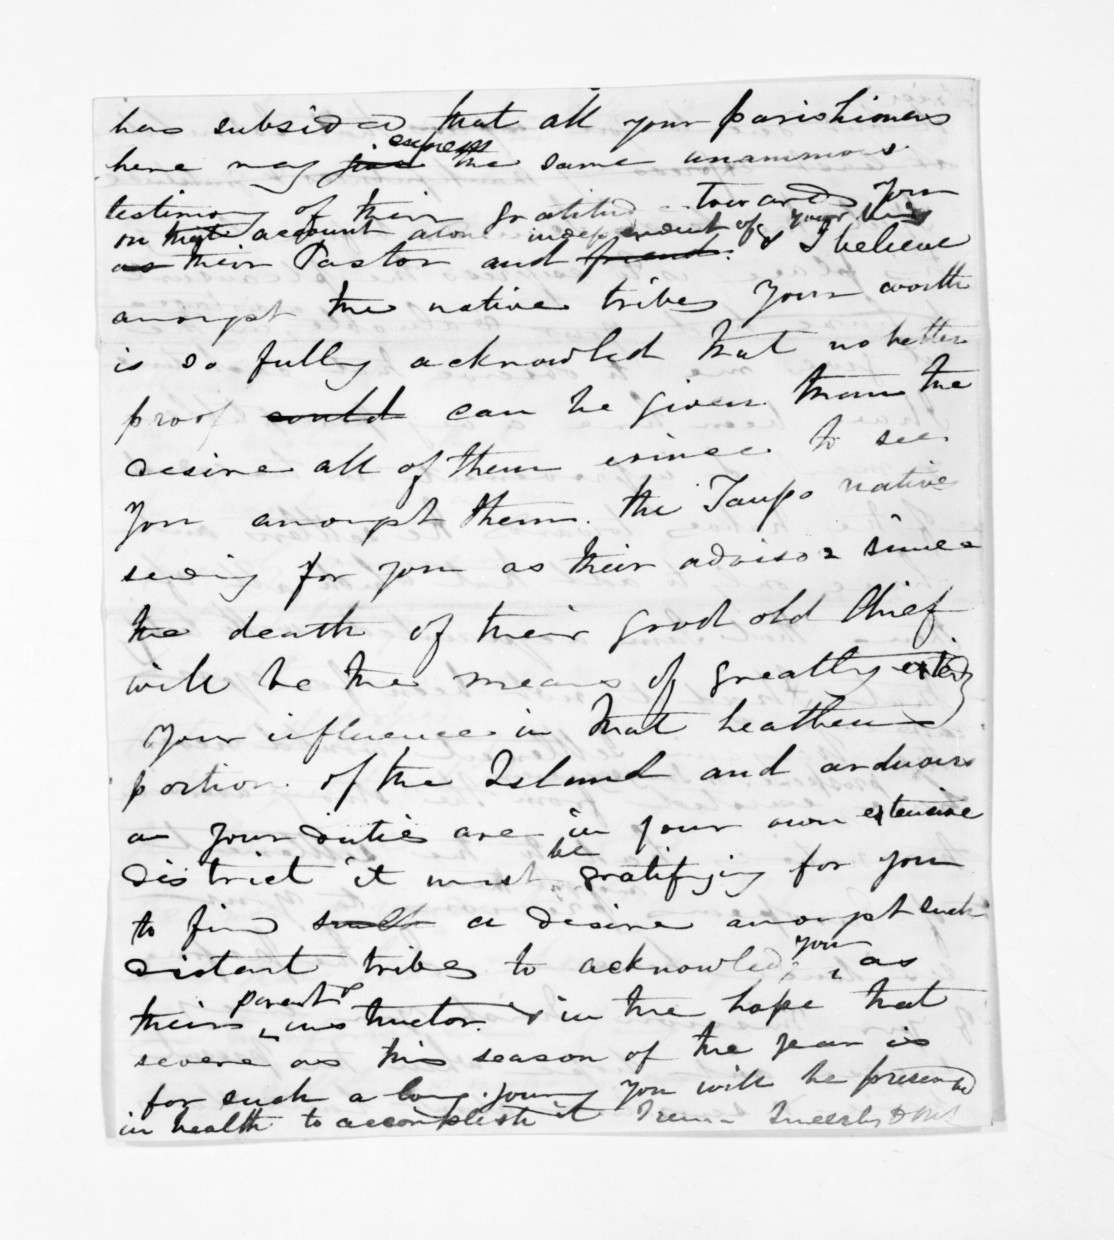 has subsided that all your parishioners
here may give express the same unanimous
testimony of their gratitude towards you
on that account alone independent of your being
as their Pastor and friend. & I believe
amongst the native tribes your worth
is so fully acknowled that no better
proof could can be given than the
desire all of them evince to see
you amongst them. the Taupo native
sending for you as their advisor since
the death of their good old Chief
will be the means of greatly extendg
your influence in that heathen
portion of the Island and arduous
as your duties are in your own extensive
district it must be gratifying for you
to find such a desire amongst such
distant tribes to acknowledge you as
their parent & instructor & in the hope that
severe as this season of the year is
for such a long journey you will be preserved
in health to accomplish it I remn Sincerely